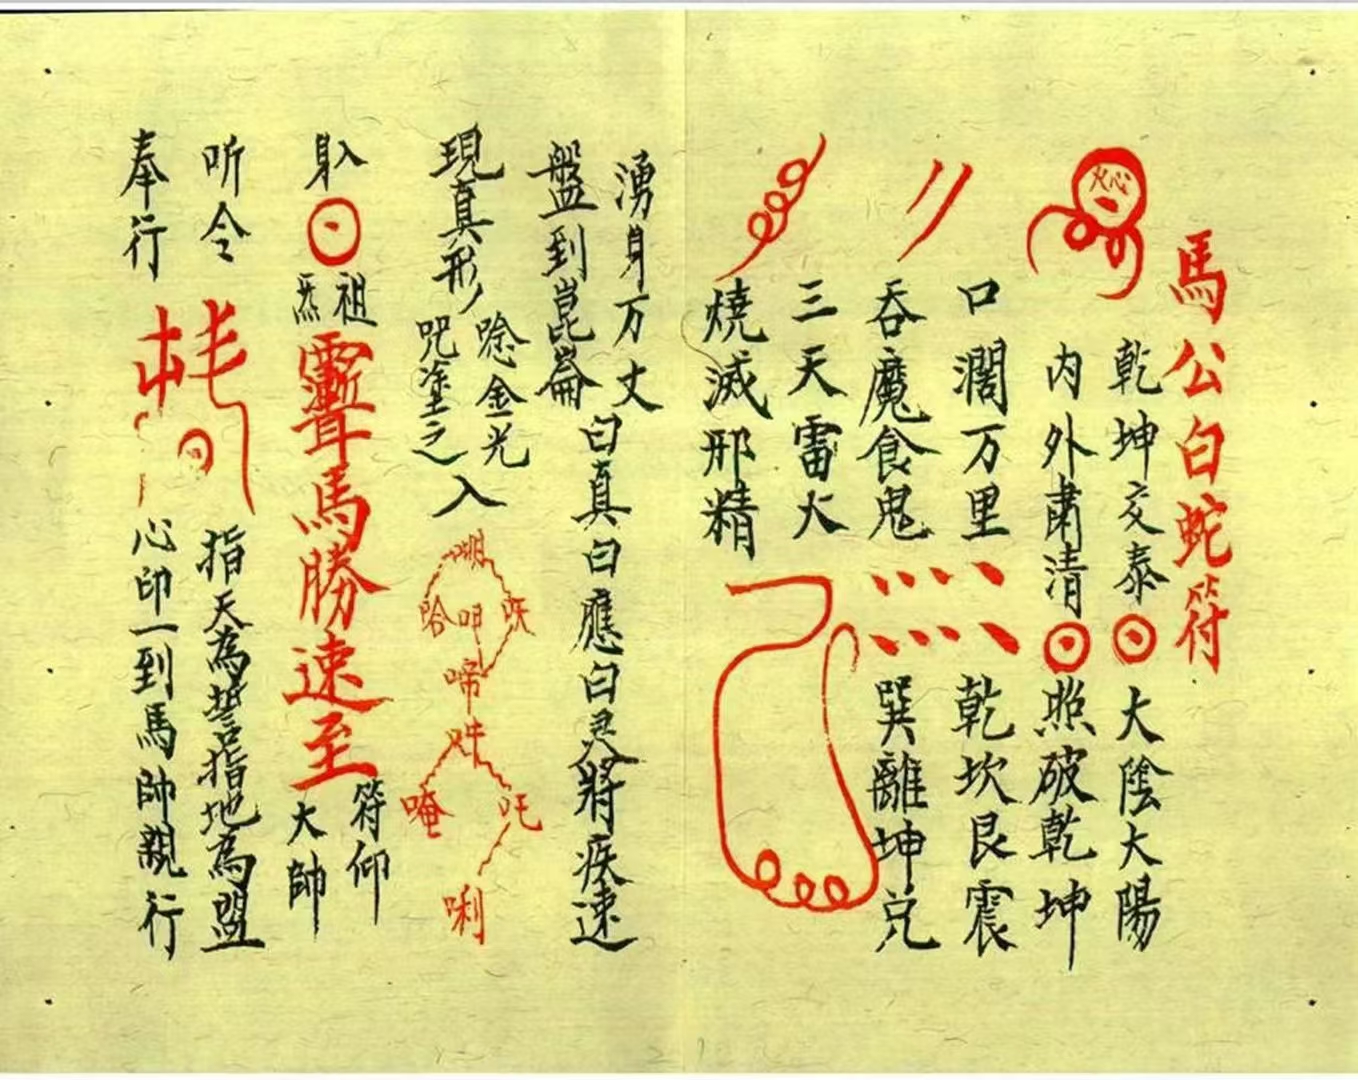 馬公白蛇符
乾坤交泰
内外肅清
大陰大陽
照破乾坤
口濶万里
吞魔食鬼
乾坎艮震
巽離坤兑
三天雷火
燒滅邪精
湧身万丈
盤到崑崙
曰真曰應曰灵將疾速
現真形
唸金光
咒塗之
入
唵
吽
吒
唎
躲
祖
炁
馬勝速至
符仰
大帥
听令
奉行
指天為誓指地為盟
心印一到馬帥親行